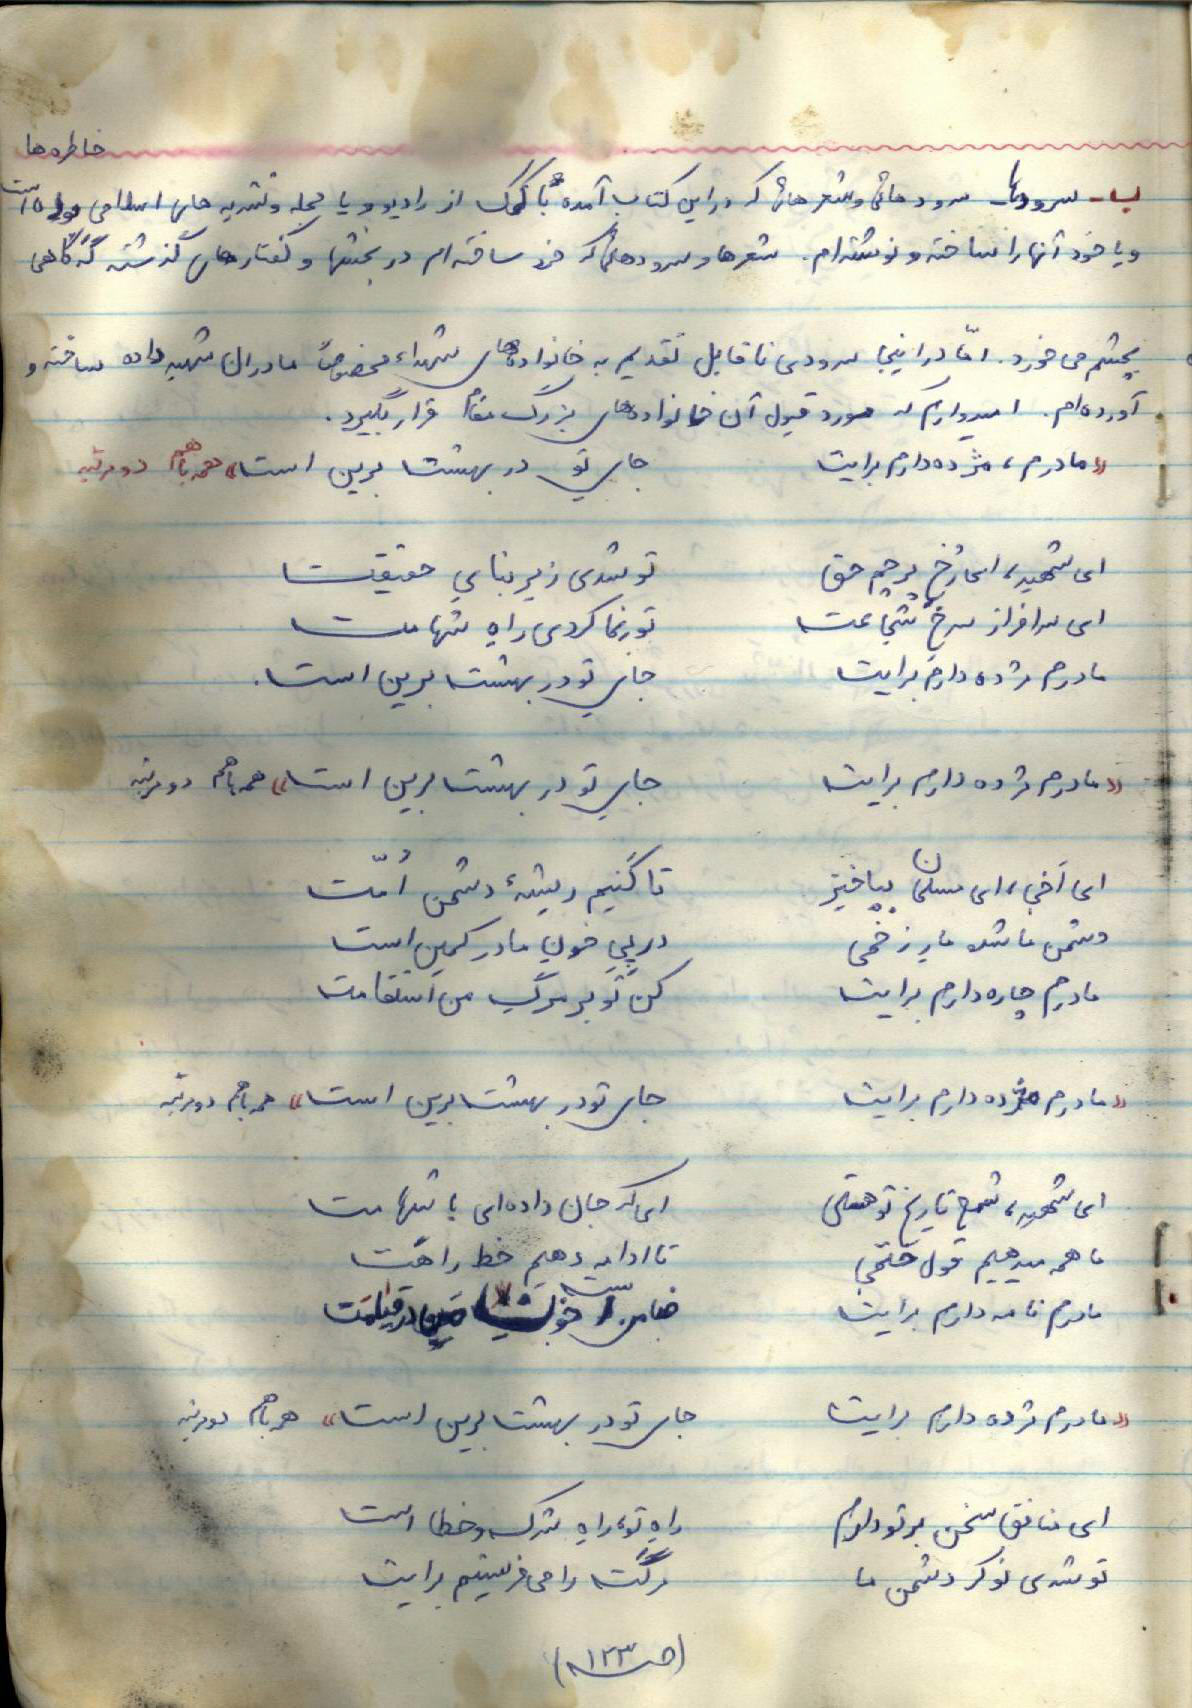 خاطره ها
ب - سرودها - سرودهائی و شعرهائی که در این کتاب آمده با کمک از رادیو و یا مجله و نشریه های اسلامی بوده است
و یا خود آنها را ساخته و نوشته‌ام. شعرها و سرودهائی که خود ساخته‌ام در بخشها و گفتارهای گذشته گه گاهی
بچشم می خورد. امّا در اینجا سرودی ناقابل تقدیم به خانواده‌های شهداء مخصوصاً مادران شهید داده ساخته و
آورده‌ام. امیدوارم که مورد قبول آن خانواده‌های بزرگ مقام قرار بگیرد.
«مادرم، مژده دارم برایت جای تو در بهشت برین است» همه باهم دو مرتبه
ای شهید، ای رخ پرچم حق تو شدی زیر بنای حقیقت
ای سرافراز سرخ شجاعت تو رنما کردی راهِ شهامت
مادرم مژده دارم برایت جای تو در بهشت برین است.
«مادرم مژده دارم برایت جای تو در بهشت برین است» همه باهم دو مرتبه
ای اَخی، ای مسلمان بپاخیز تا کَنیم ریشهٔ دشمن اُمّت
دشمن ما شده مار زخمی در پیِ خونِ ما در کمین است
مادرم چاره دارم برایت کن تو بر مرگِ من استقامت
«مادرم مژده دارم برایت جای تو در بهشت برین است» همه باهم دو مرتبه
ای شهید، شمع تاریخ تو هستی ای که جان داده‌ای با شهامت
ما همه میدهیم قول حتمی تا ادامه دهیم خط راهت
مادرم نامه دارم برایت ضامن خونت در قیامت
«مادرم مژده دارم برایت جای تو در بهشت برین است» همه باهم دو مرتبه
ای منافق سخن بر تو دارم راهِ تو، راهِ شرک و خطا است
تو شدی نوکر دشمن ما مرگت را می فرستیم برایت
(صفحه ۱۲۳)